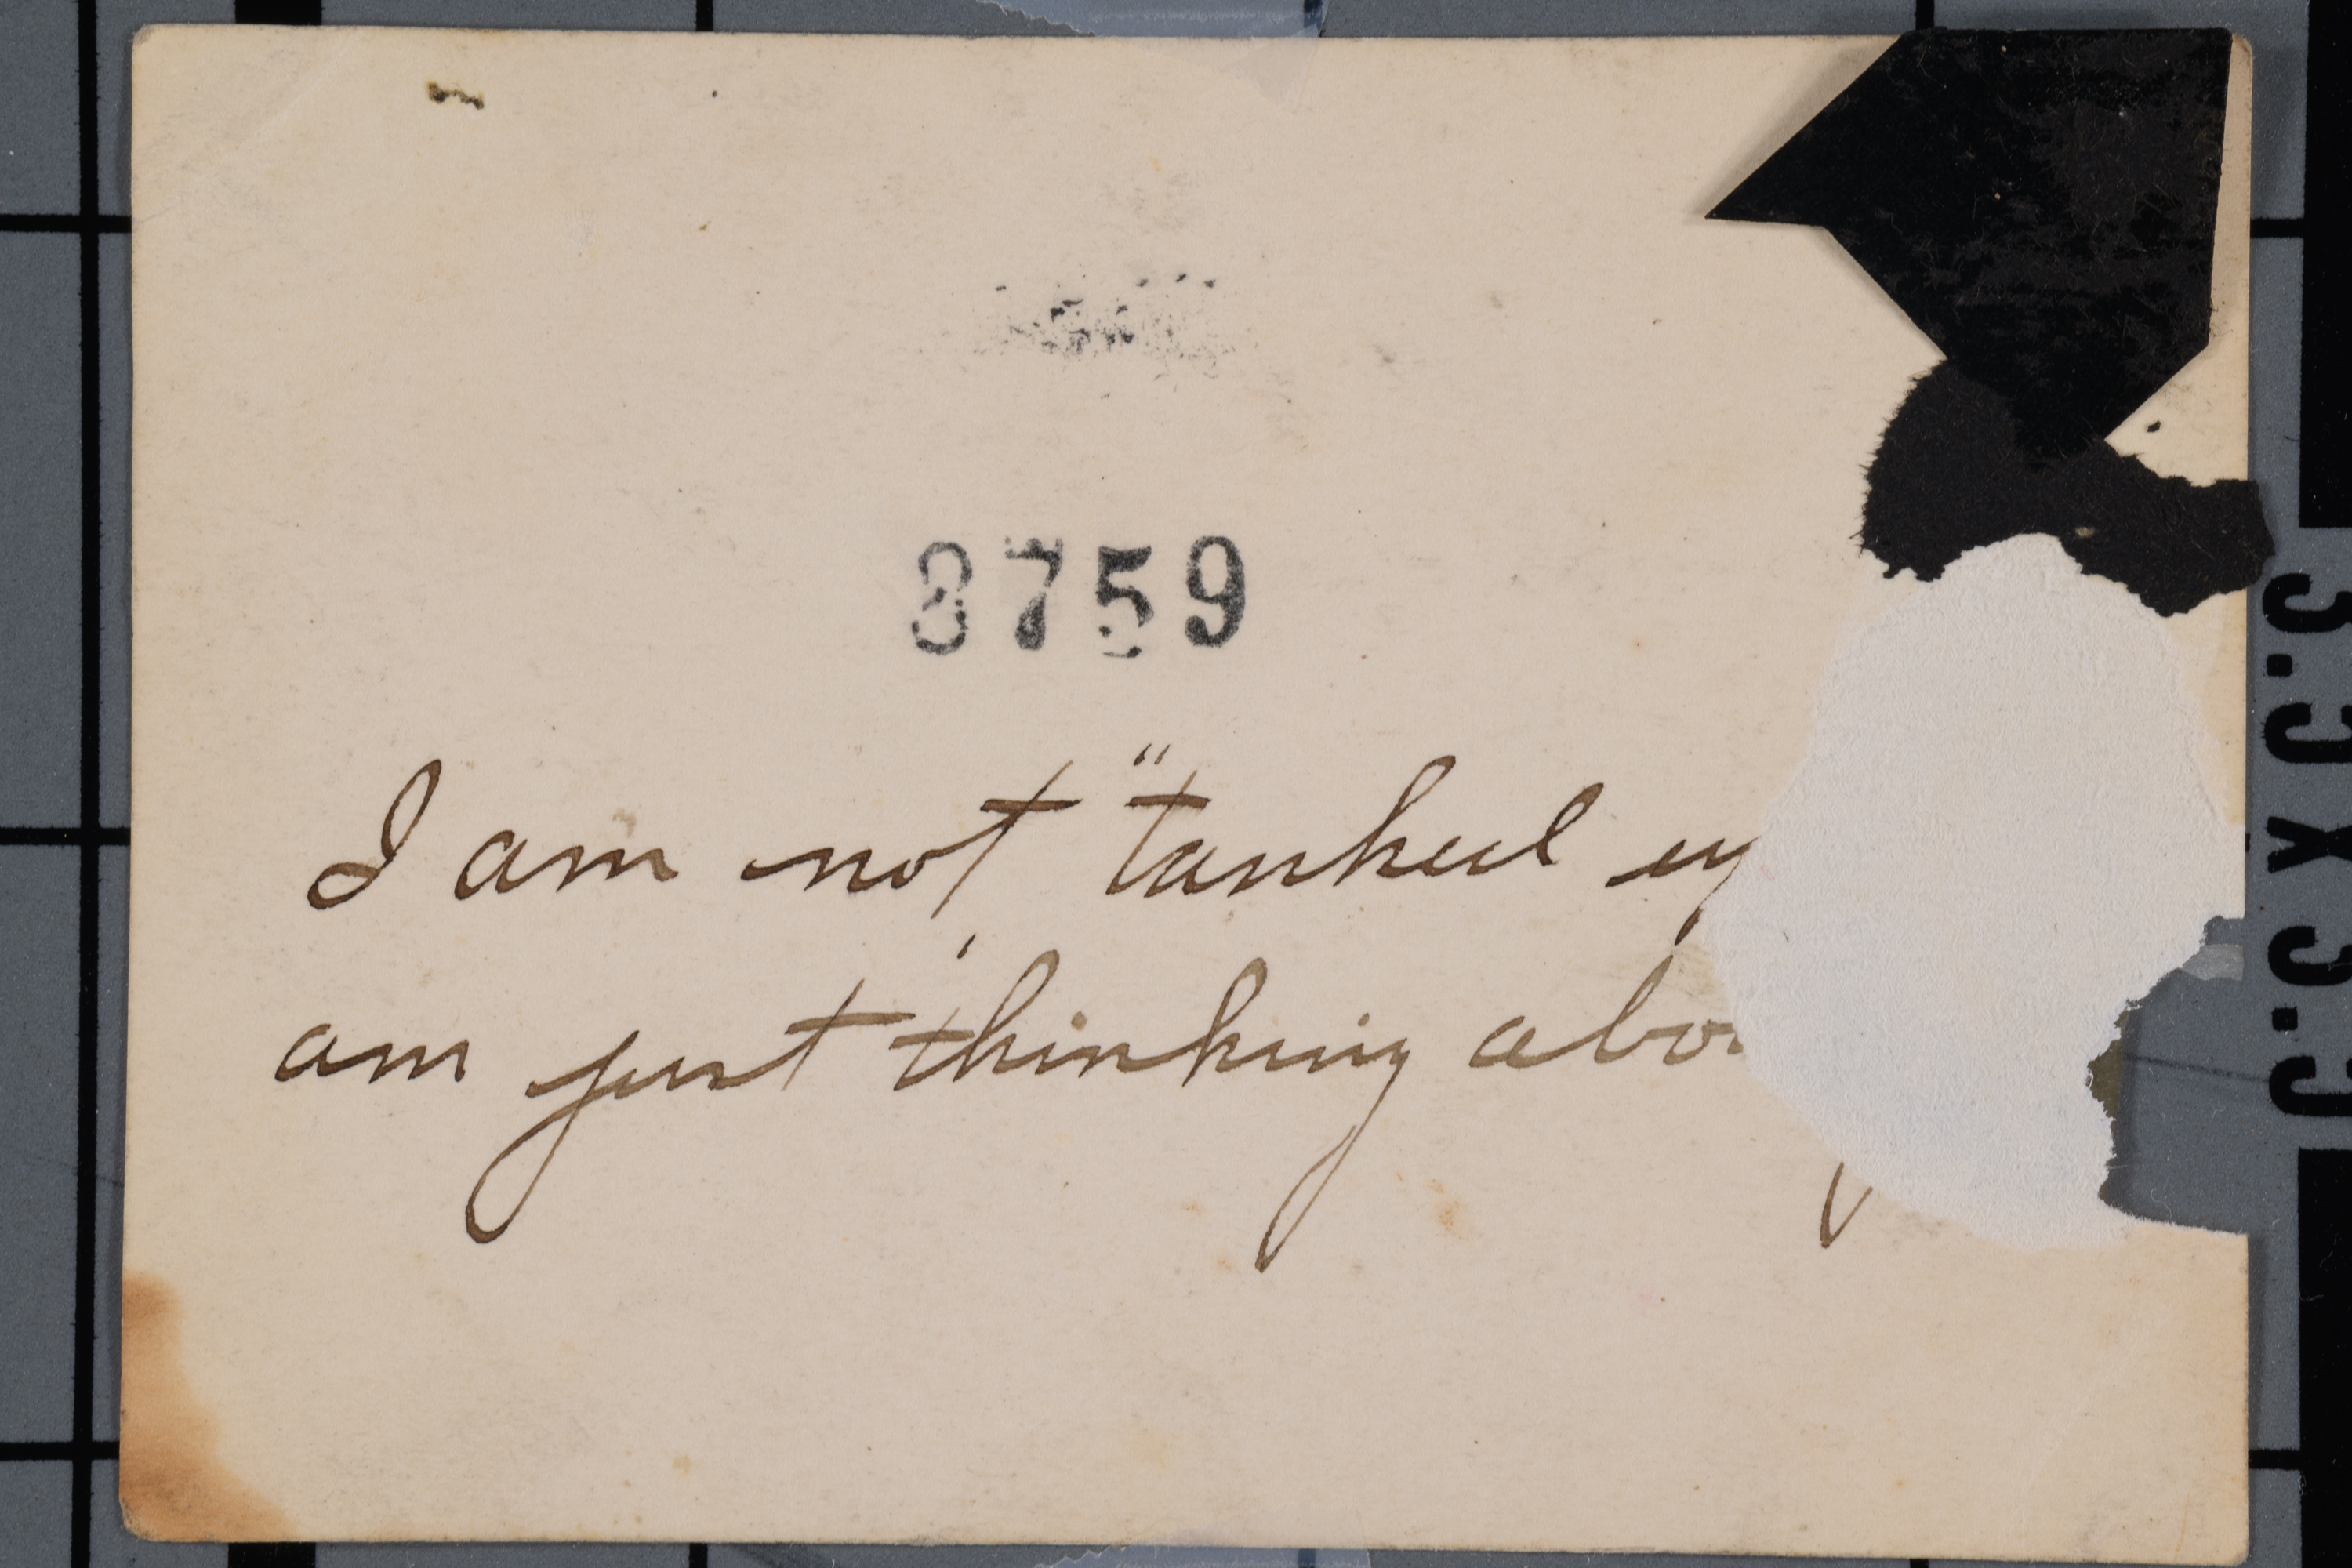 8759
I am not "tanked up
am just thinking abo